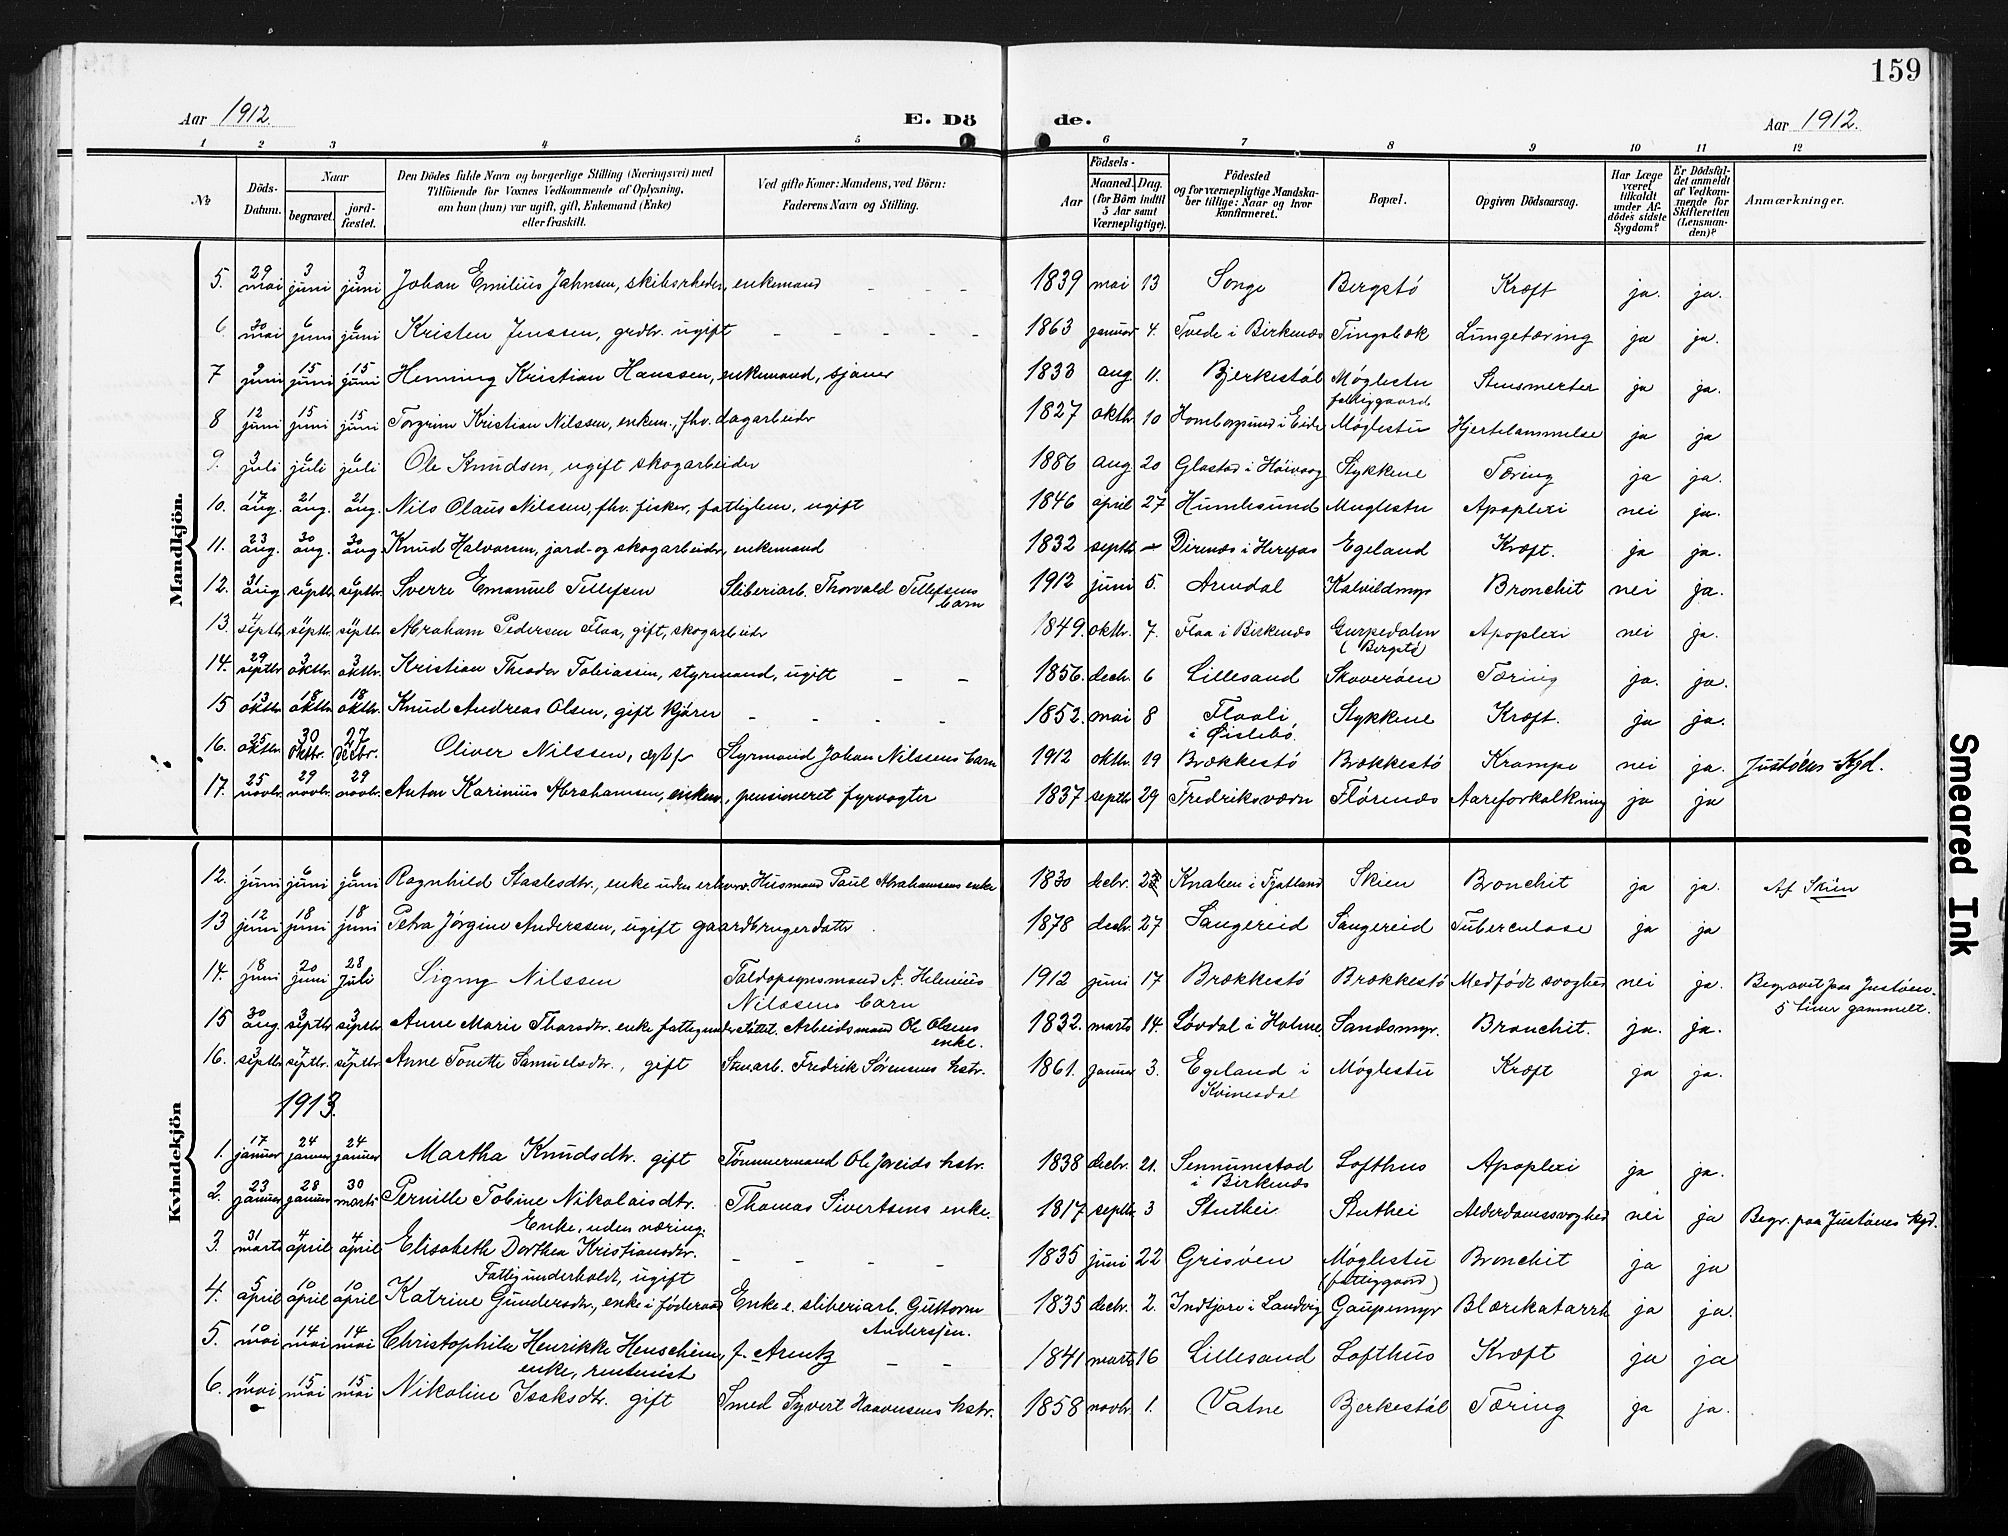 159
Aar 1912.
E. Dö
de.
Aar 1912.
1 2 3 4 5 6 7 8 9 10 11 12
No
Döds-Datum.
Naar
begravet.
jordfæstet.
Den Dödes fulde Navn og borgerlige Stilling (Næringsvei) med
Tilföiende for Voxnes Vedkommende af Oplysning,
om han (hun) var ugift, gift, Enkemand (Enke)
eller fraskilt.
Ved gifte Koner: Mandens, ved Börn:
Faderens Navn og Stilling.
Födsels-
Aar
Maaned.
Dag.
(for Börn indtil
5 Aar samt
Værnepligtige).
Födested
og for værnepligtige Mandska-
ber tillige: Naar og hvor
konfirmeret.
Bopæl.
Opgiven Dödsaarsag.
Har Læge
været
tilkaldt
under Af-
dödes sidste
Sygdom?
Er Dödsfal-
det anmeldt
af Vedkom-
mende for
Skifteretten
(Lensman-
den)?
Anmærkninger.
Mandkjön.
5. 29 mai 3 juni 3 juni Johan Emilius Jahnsen, skibsrheder, enkemand 1839 mai 13 Songe Bergstö Kræft ja. ja.
6 30 mai 6 juni 6 juni Kristen Jenssen, grdbr. ugift 1863 januar 4. Tvede i Birkenæs Tingsbæk Lungetæring ja ja.
7 9 juni 15 juni 15 juni Henning Kristian Hanssen, enkemand, sjöner 1833 aug 11. Bjerkestöl Möglestu fattiggaard Stensmerter ja ja.
8 12 juni 15 juni 15 juni Torgrim Kristian Nilssen, enkem., fhv. dagarbeider 1827 oktbr 10 Homborgsund i Eide Möglestu Hjertelammelse ja ja
9. 3 juli 6 juli 6 juli Ole Knudsen, ugift skogarbeider 1886 aug 20 Glastad i Höivaag Stykkene Tæring ja ja.
10. 17 aug. 21 aug. 21 aug. Nils Olaus Nilssen, fhv. fisker, fattiglem, ugift 1846 april 27 Humlesund Møglestu Apoplexi nei ja.
11. 23 aug. 30 aug. 30 aug. Knud Halvorsen, jord- og skogarbeider, enkemand 1832 septbr - Direnæs i Herefos Egeland Kræft. ja ja.
12. 31 aug. 6 septbr. 6 septbr. Sverre Emanuel Tellefsen Sliberiarb. Thorvald Tellefsens barn 1912 juni 5. Arendal Kalvildmyr Bronchit nei ja.
13. septbr. septbr. septbr. Abraham Pedersen Flaa, gift, skogarbeider 1849. oktbr. 7. Flaa i Birkenæs Gurpedalen (Bergstö) Apoplexi nei ja.
14. 29 septbr. 3 oktbr. 3 oktbr. Kristian Theodor Tobiassen, styrmand, ugift 1856. decbr. 6 Lillesand Skoveröen Tæring ja. ja.
15 13 oktbr. 18 oktbr. 18 oktbr. Knud Andreas Olsen, gift Kjörer 1852. mai 8 Flaali i Öislebö Stykkene Kræft. ja ja.
16. 25 oktbr 30 oktbr. 27 decbr. Oliver Nilssen, Styrmand Johan Nilssens barn 1912 oktbr. 19 Brækkestö Brækkestö Krampe nei ja. Justöens Kgd.
17. 25 novbr. 29 novbr. 29 novbr. Anton Karinius Abrahamsen, enkem., pensioneret fyrvogter 1837 septbr 29 Fredriksværn Flörenæs Aareforkalkning ja ja
Kvindekjön
12. 1 juni 6 juni 6 juni Ragnhild Staalesdtr., enke uden erhverv. Husmand Paul Abrahamsens enke 1830 decbr. Knaben i Fjotland Skien Bronchit ja ja. Af Skien
13 12 juni 18 juni 18 juni Petra Jörgine Anderssen, ugift gaardbrugerdatter 1878 decbr. 27 Sangereid Sangereid Tuberculose ja ja
14. 18 juni 20 juni 28 juli Signy Nilssen Faldopsynsmand A. Helenius Nilssens barn 1912 juni 17 Brækkestö Brækkestö Medfödt svaghed nei ja. Begravet paa Justöen. 5 timer gammelt.
15 30 aug. 3 septbr. 3 septbr. Anne Marie Tharsdtr. enke fattigunderstöttet. Arbeidsmand Ole Olsens enke. 1832. marts 14. Lövdal i Holme Sandsmyr. Bronchit. ja. ja.
16. 3 septbr. 7 septbr. 7 septbr. Anne Tonette Samuelsdtr., gift Stenarb. Fredrik Sørensens hstr. 1861. januar 3. Egeland i Kvinesdal Möglestu Kræft ja ja.
1913.
1. 17 januar 24 januar 24 januar Martha Knudsdtr. gift Tömmermand Ole Joreids hstr. 1838 decbr. 21. Sennumstad i Birkenæs Lofthus Apoplexi ja ja.
2. 23 januar 28 januar 30 marts Pernille Tobine Nikolaisdtr. Enke, uden næring. Thomas Sivertsens enke. 1817 septbr 3 Stuthei Stuthei Alderdomssvaghed nei ja Begr. paa Justöens kgd.
3. 31 marts 4 april 4 april Elisabeth Dorthea Kristiansdtr. Fattigunderholdt, ugift 1835 juni 22 Grisöen Möglestu (fattiggaard) Bronchit ja ja
4. 5 april 10 april 10 april Katrine Gundersdtr., enke i föderaad Enke e. sliberiarb. Guttorm Andersen. 1835 decbr. 2. Indtjore i Landvig Gaupemyr Blærekatarrh ja ja.
5. 10 mai 14 mai 14 mai Christophila Henrikke Henschien, enke, rentenist f. Arentz 1841 marts 16 Lillesand Lofthus Kræft ja ja
6. 11 mai 15 mai 15 mai Nikoline Isaksdtr. gift Smed Syvert Haavensens hstr. 1858 novbr. 1. Vatne Bjerkestöl Tæring ja ja.
Smeared Ink